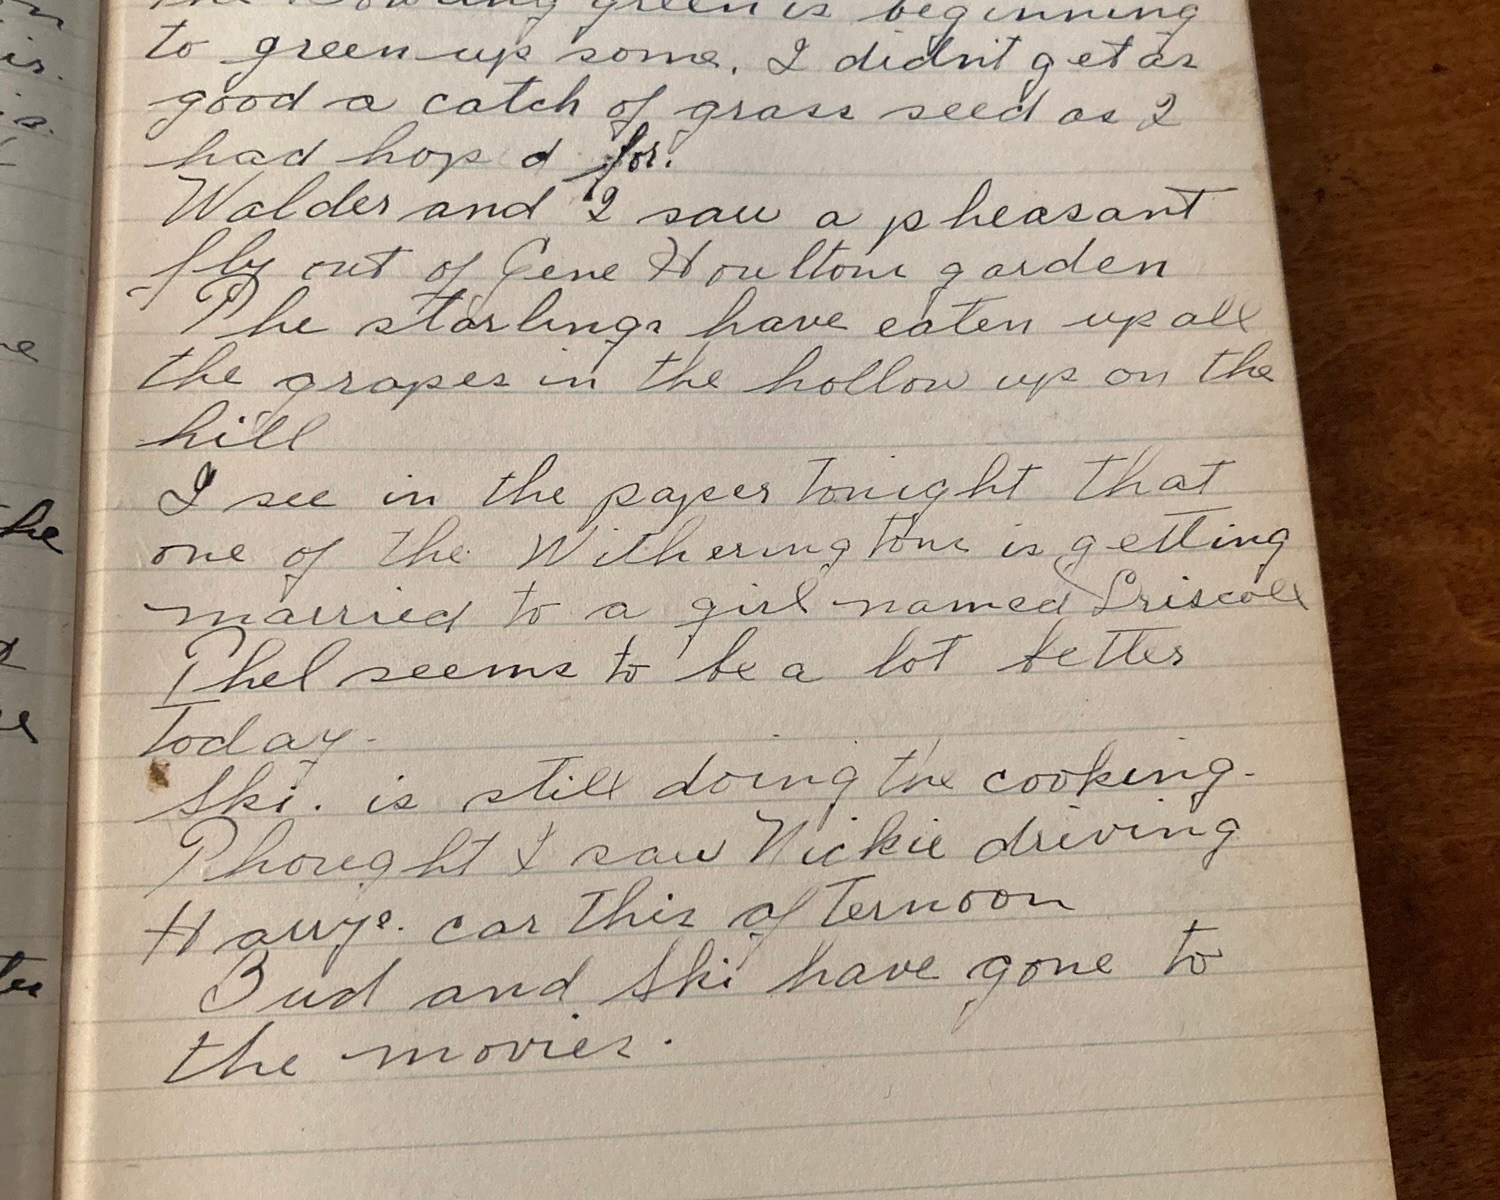 The Bowling green is beginning
to green up some. I didn't get as
good a catch of grass seed as I
had hop d for.
Walder and I saw a pheasant
fly out of Gene Houltons garden
The starlings have eaten up all
the grapes in the hollow up on the
hill
I see in the paper tonight that
one of the Witheringtons is getting
married to a girl named Driscoll
Thel seems to be a lot better
today.
Ski. is still doing the cooking.
Thought I saw Nickie driving
Harrys. car this afternoon
Bud and Ski have gone to
the movies.